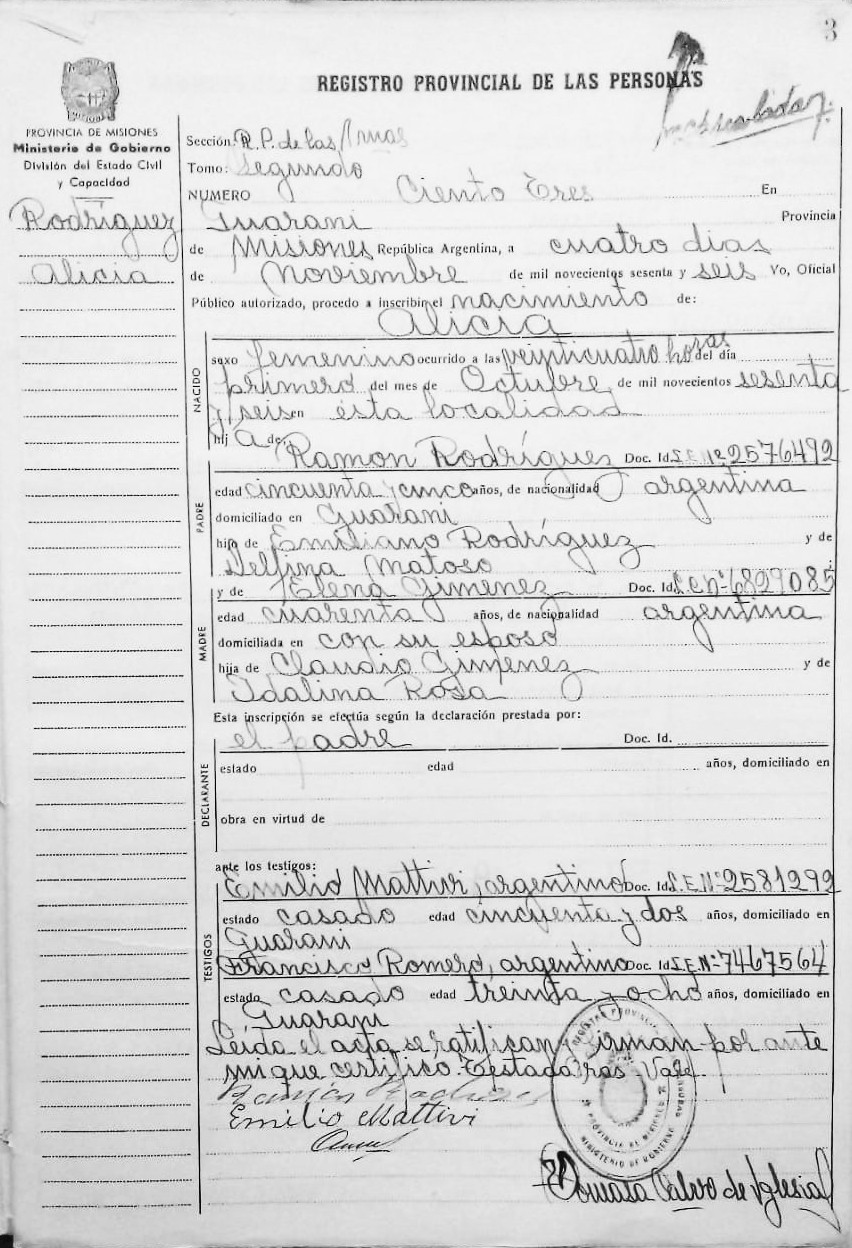 3
REGISTRO PROVINCIAL DE LAS PERSONAS
PROVINCIA DE MISIONES
Ministerio de Gobierno
División del Estado Civil
y Capacidad
Rodríguez
Alicia
Sección: R.P. de las
Tomo: Segundo
NUMERO Ciento Tres En
Guarani Provincia
de Misiones República Argentina, a cuatro dias
de Noviembre de mil novecientos sesenta y seis Yo, Oficial
Público autorizado, procedo a inscribir el nacimiento de:
Alicia
NACIDO
sexo femenino ocurrido a las veinticuatro horas del día
primero del mes de Octubre de mil novecientos sesenta
y seis en ésta localidad
hij a de:
Ramon Rodríguez Doc. Id. L.E.Nº 2576492
PADRE
edad cincuenta y cinco años, de nacionalidad argentina
domiciliado en Guarani
hijo de Emiliano Rodríguez y de
Delfina Matoso
y de Elena Gimenez Doc. Id. L.C.Nº 6829085
MADRE
edad cuarenta años, de nacionalidad argentina
domiciliada en con su esposo
hija de Claudio Gimenez y de
Idalina Rosa
Esta inscripción se efectúa según la declaración prestada por:
el padre Doc. Id.
DECLARANTE
estado edad años, domiciliado en
obra en virtud de
ante los testigos:
Emilio Mattivi, argentino Doc. Id. L.E.Nº 2581292
TESTIGOS
estado casado edad cincuenta y dos años, domiciliado en
Guarani
Francisco Romero, argentino Doc. Id. L.E.Nº 7467564
estado casado edad treinta y ocho años, domiciliado en
Guarani
Leida el acta se ratifican firman por ante
mi que certifico. Vale.
Ramón
Emilio Mattivi
PROVINCIA DE MISIONES
MINISTERIO DE GOBIERNO
Donata Calvo de Iglesias